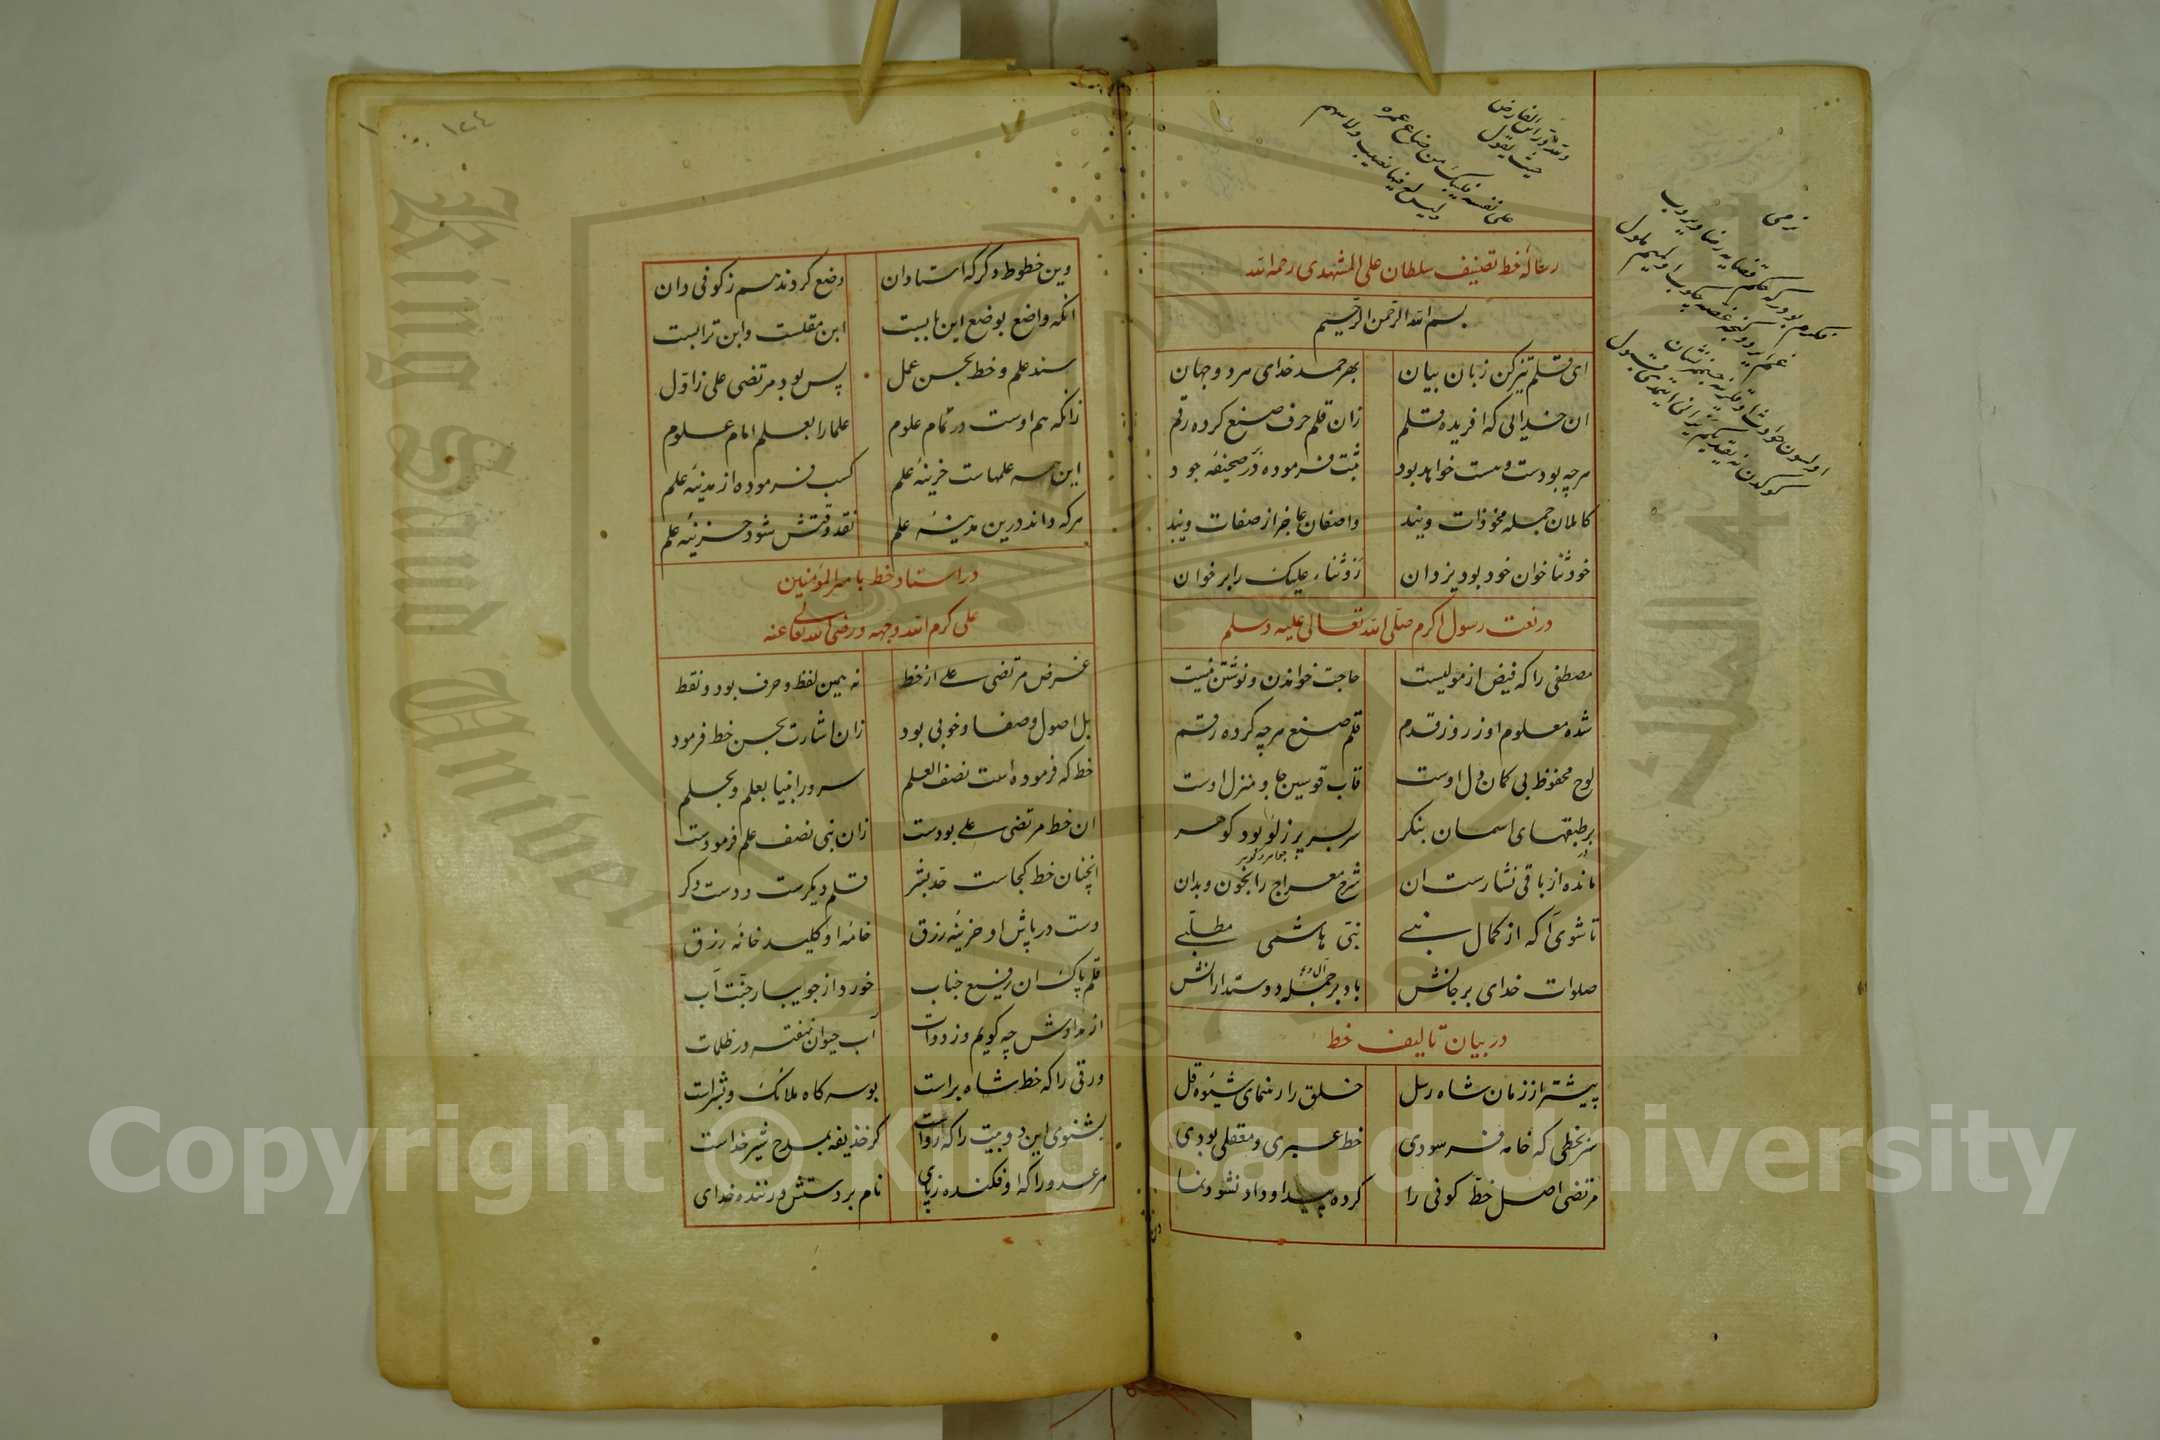 رساله خط تصنیف سلطان علی المشهدی رحمه الله
بسم الله الرحمن الرحیم
ای قلم تیز کن زبان بیان بهر حمد خدای هر دو جهان
ان خدایی که افریده قلم زان قلم حرف صنع کرده رقم
هرچه بودست و هست خواهد بود ثبت فرموده در صحیفه جود
کاملان جمله محو ذات ویند واصفان عاجز از صفات ویند
خود ثنا خوان خود بود یزدان رو ثناء علیک را بر خوان
در نعت رسول اکرم صلی الله تعالی علیه وسلم
مصطفی را که فیض از مولیست حاجت خواندن و نوشتن نیست
شده معلوم او ز روز قدم قلم صنع هرچه کرده رقم
لوح محفوظ بی کمان دل اوست قاب قوسین جا و منزل اوست
بر طبقهای اسمان بنکر سربسر پر ز لؤلؤ و کوهر
مانده از باقی نثارست ان شرح معراج را بخون و بدان
تا شوی آکه از کمال نبی نبی هاشمی مطلبی
صلوات خدای بر جانش باد بر جمله دوستدارانش
در بیان تالیف خط
پیشتر از زمان شاه رسل خلق را رهنمای شیوه قل
سر بخطی که خامه فرسودی خط عبری و معقلی بودی
مرتضی اصل خط کوفی را کرده پیدا و داد نشو و نما
١٢٤
وین خطوط دکر که استادان وضع کردند هم ز کوفی دان
انکه واضع بوضع این بابست ابن مقلست وابن ترابست
سند علم و خط بحسن عمل پس بود مرتضی علی ز اول
زانکه هم اوست در تمام علوم علما را بعلم امام علوم
این همه علمهاست خزینه علم کسب فرموده از مدینه علم
هرکه داند درین مدینه علم نقد وقتش شود خزینه علم
در اسناد خط با میر المؤمنین
علی کرم الله وجهه ورضی الله تعالی عنه
غرض مرتضی علی از خط نه همین لفظ و حرف بود و نقط
بل اصول و صفا و خوبی بود زان اشارت بحسن خط فرمود
خط که فرموده است نصف العلم سرور انبیا بعلم و بحلم
ان خط مرتضی علی بودست زان نبی نصف علم فرمودست
انچنان خط کجاست حد بشر قلم دیکرست و دست دکر
دست در پاش او خزینه رزق خامه او کلید خانه رزق
قلم پاک ان رفیع جناب خورد از جویبار جنت آب
از مدادش چه کویم و ز دوات آب حیوان نهفته در ظلمات
ورقی را که خط شاه براست بوسه کاه ملائک و بشراست
بشنوی این دو بیت را که رواست کز خذیفه بمدح شیر خداست
مر عدو را که او فکنده ز پای نام بر دستش درنده خدای
King Saud University
1957
Copyright © King Saud University